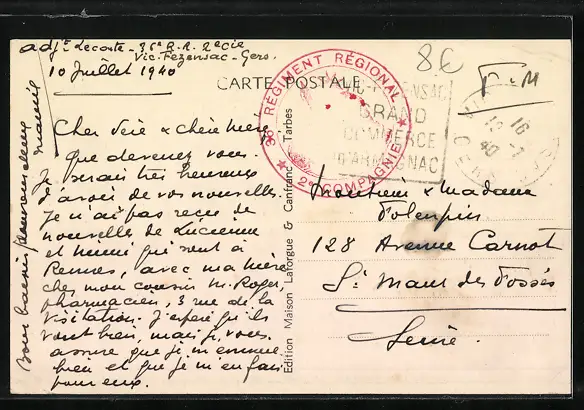 adjt Lecoste - 36e R.R. 2e Cie
Vic-Fezensac - Gers.
10 Juillet 1940
CARTE POSTALE
8€
F.M
36e RÉGIMENT RÉGIONAL
★ 2e COMPAGNIE ★
VIC-FEZENSAC
GRAND
COMMERCE
D'ARMAGNAC
16
12 -7
40
GERS
Cher Père & Chère Mère,
Que devenez vous.
Je serais très heureux
d'avoir de vos nouvelles.
Je n'ai pas reçu de
nouvelle de Lucienne
et mimi qui sont à
Rennes, avec ma mère
chez mon cousin M. Roger,
pharmacien, 3 rue de la
Visitation. J'espère qu'ils
vont bien, mais je vous
assure que je m'ennuie
bien et que je m'en fais
pour eux.
Bons baisers
Edition Maison Laforgue & Canfranc, Tarbes
Monsieur & Madame
128 Avenue Carnot
St Maur des Fossés
Seine.